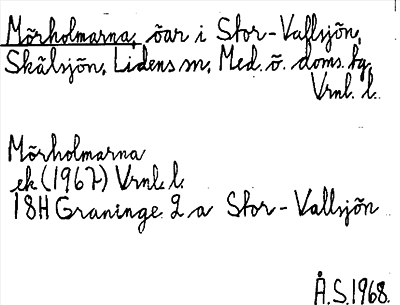 Mörholmarna, öar i Stor-Vallsjön,
Skälsjön, Lidens sn, Med. ö. doms. hg.
Vrnl. l.
Mörholmarna
ek (1967) Vrnl. l.
18H Graninge 2 a Stor-Vallsjön
Å.S. 1968.